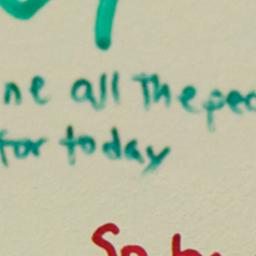 ne all The peo
for today
So